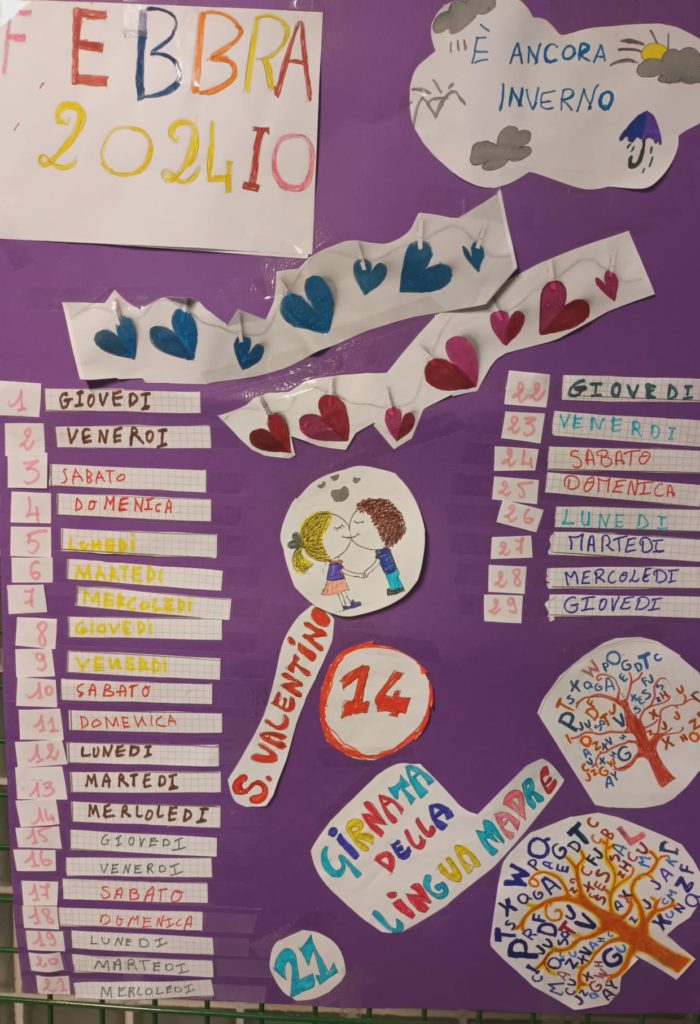 FEBBRA
2024IO
È ANCORA
INVERNO
1 GIOVEDI
2 VENERDI
3 SABATO
4 DOMENICA
5 LUNEDÌ
6 MARTEDI
7 MERCOLEDI
8 GIOVEDI
9 VENERDI
10 SABATO
11 DOMENICA
12 LUNEDI
13 MARTEDI
14 MERLOLEDI
15 GIOVEDI
16 VENERDI
17 SABATO
18 DOMENICA
19 LUNEDI
20 MARTEDI
21 MERCOLEDI
22 GIOVEDI
23 VENERDI
24 SABATO
25 DOMENICA
26 LUNEDI
27 MARTEDI
28 MERCOLEDI
29 GIOVEDI
S. VALENTINO
14
GIRNATA
DELLA
LINGUA MADRE
21